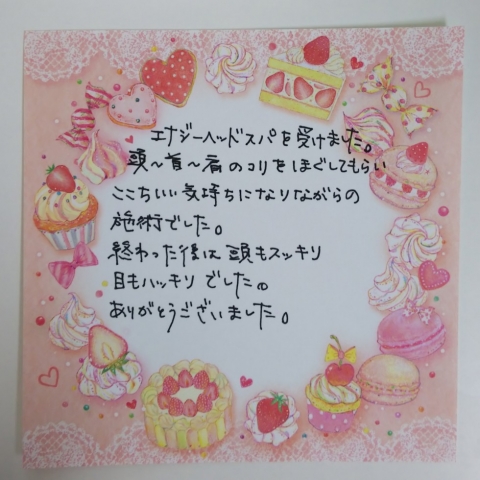 エナジーヘッドスパを受けました。
頭〜首〜肩のコリをほぐしてもらい
ここちいい気持ちになりながらの
施術でした。
終わった後は頭もスッキリ
目もハッキリでした。
ありがとうございました。